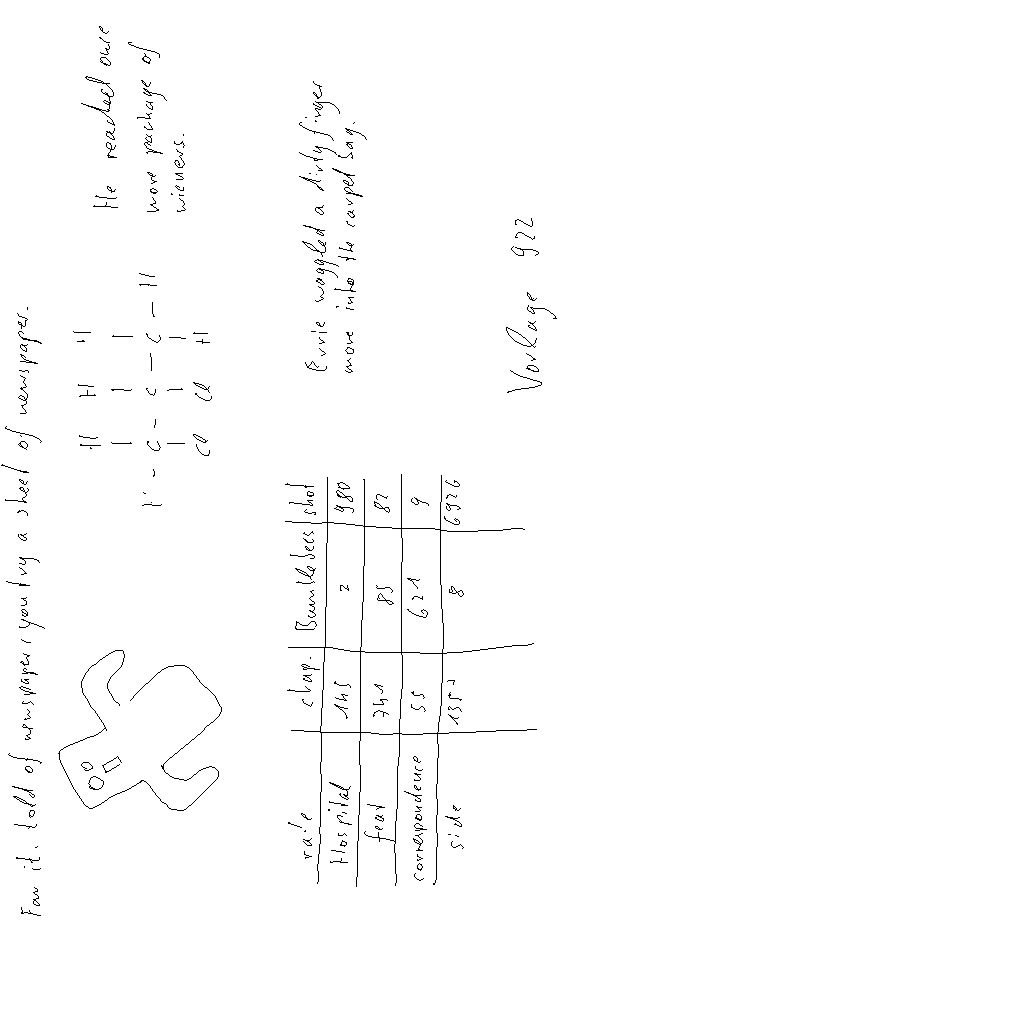 For it. told of newspaper, you try a sheet of newspaper.
H H H
H - C - C - C - H
Cl Cl H
He reached once
more package of
wieners.
rate chap. Bumblebees shot
Hospital 145 2 980
feat 741 85 82
correspondence 55 621 9
side 1357 8 6926
Ernie waggled a dirty finger
more into the carpet bag.
Vorlage 922